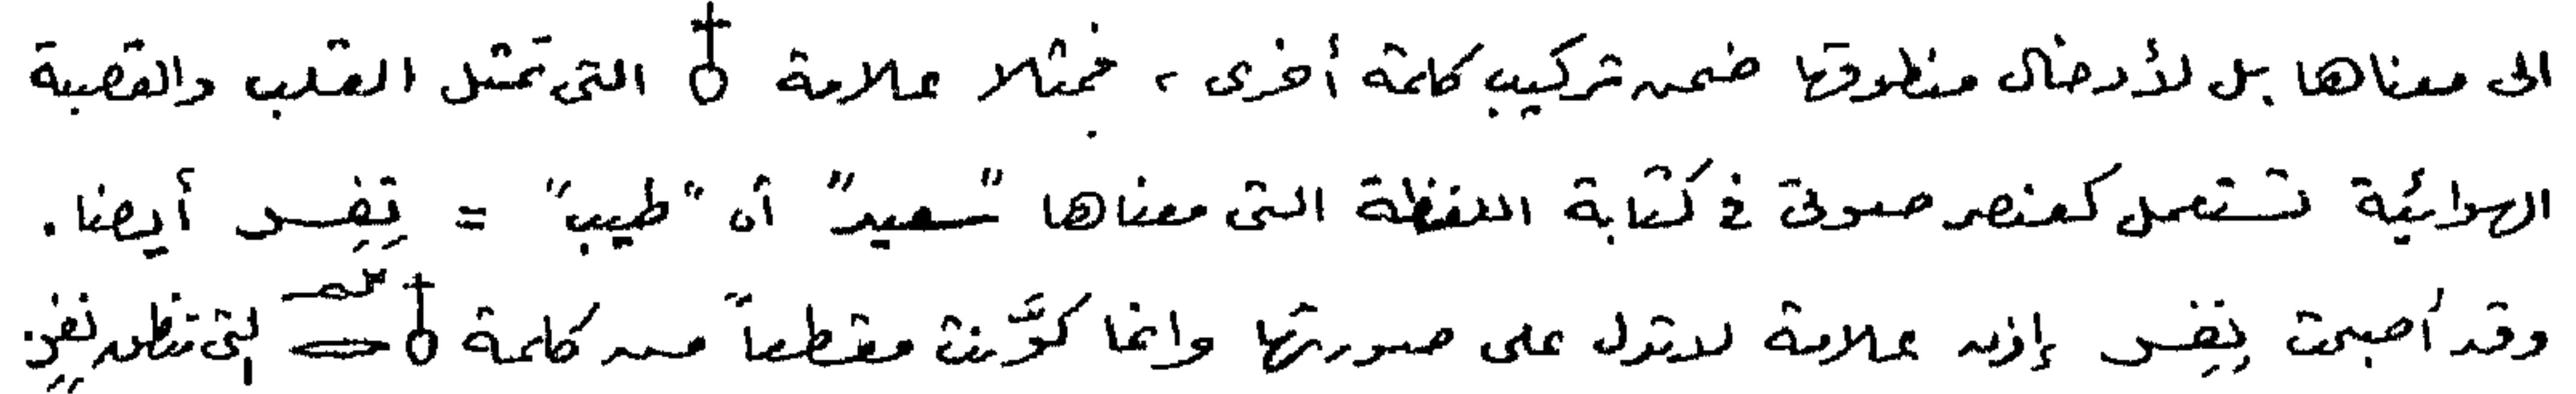 الى معناها بل لأدخال منطوقها ضمن تركيب كلمة أخرى ، فمثلا علامة 𓄤 التى تمثل القلب والقصبة
الهوائية تستعمل كعنصر صوتى فى كتابة اللفظة التى معناها "سعيد" أو "طيب" = نِفِر أيضا .
وقد أصبحت نِفِر إذن علامة لا تدل على صورتها وانما كوَّنت مقطعاً من كلمة 𓄤 التى تنطق نفر